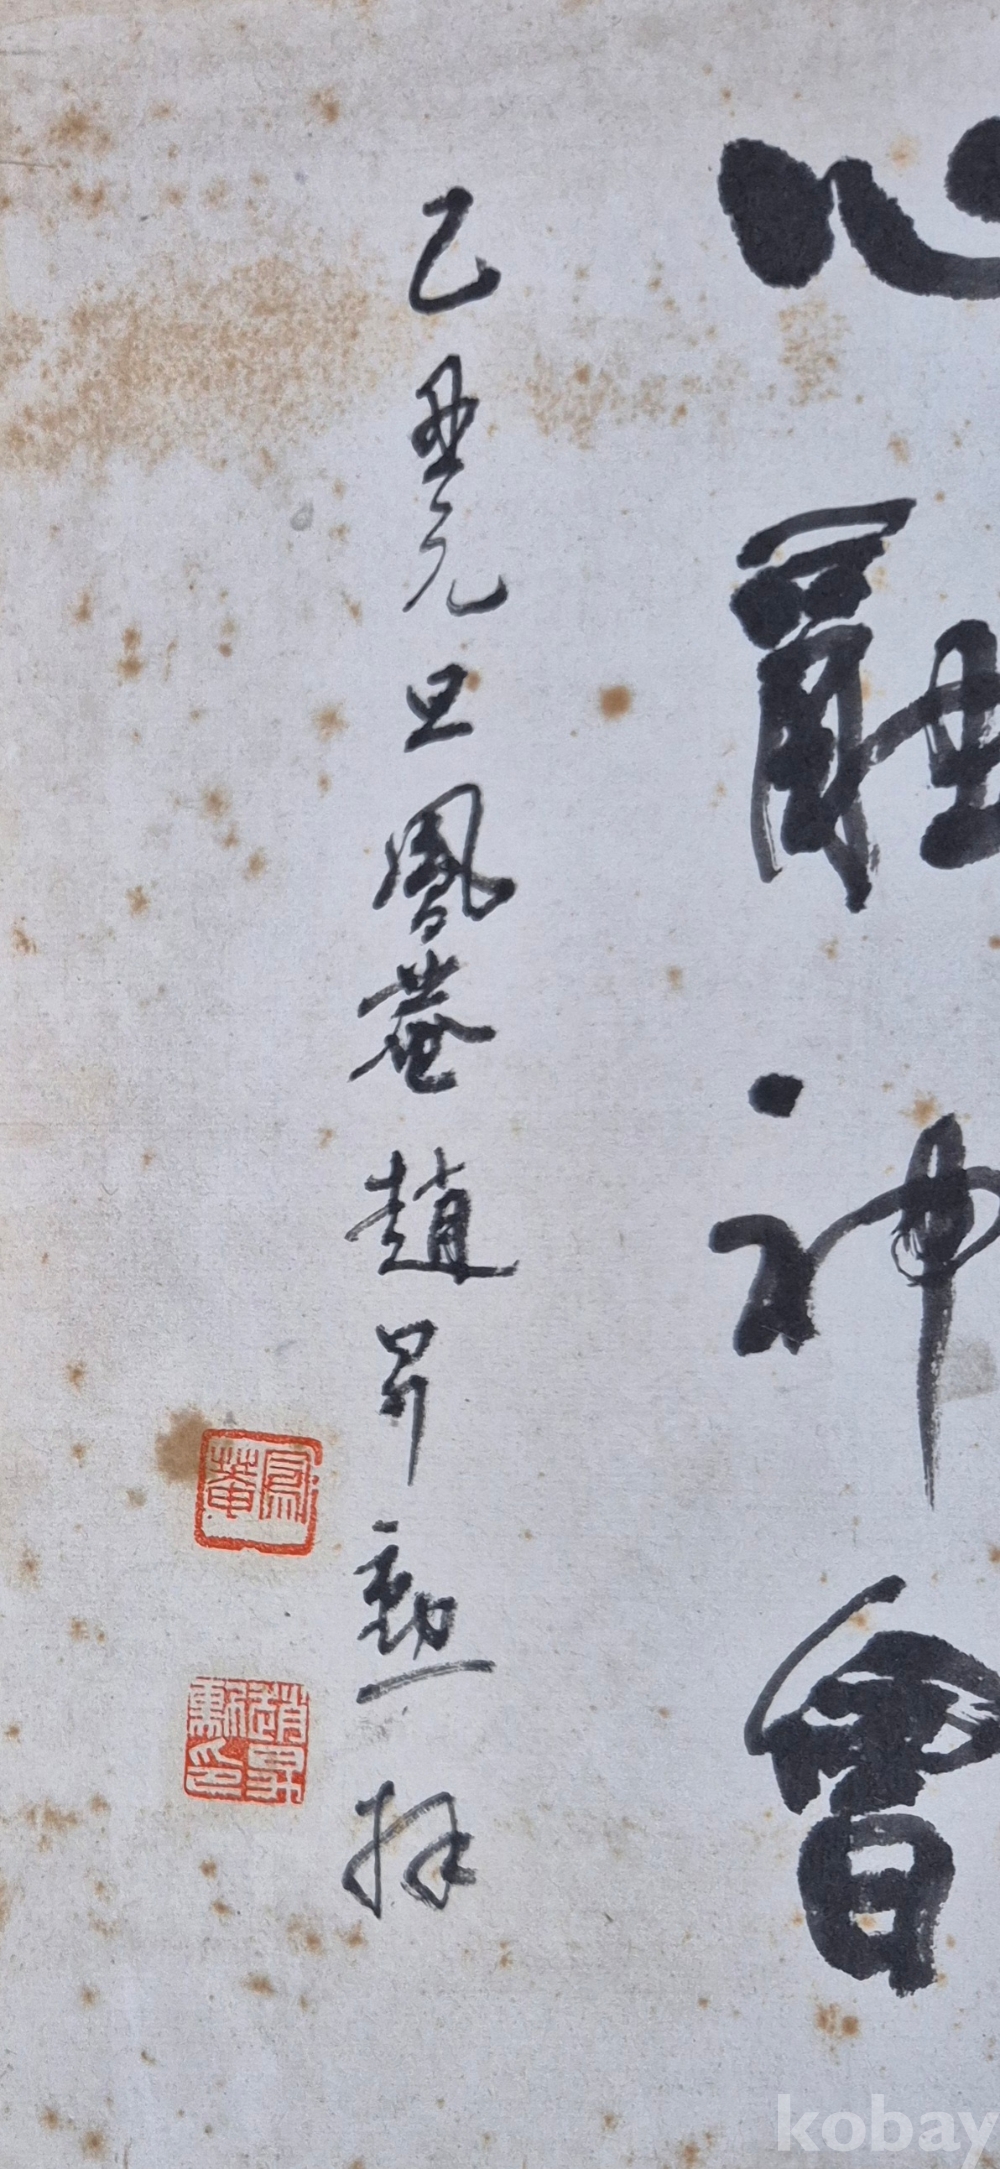 心融神會
乙丑元旦鳳菴趙昇勳拜
鳳菴
趙昇勳印
kobay